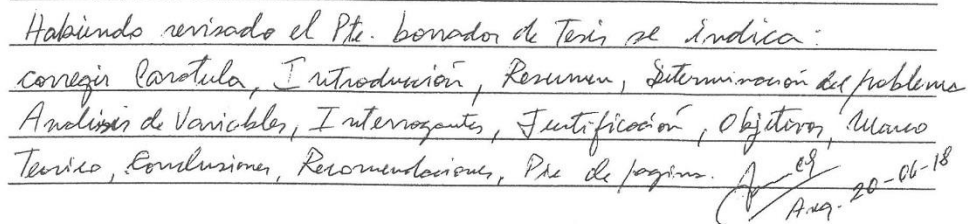 Habiendo revisado el Pte. borrador de Tesis se indica:
corregir Caratula, Introducción, Resumen, Determinación del problema
Analisis de Variables, Interrogantes, Justificación, Objetivos, Marco
Teorico, Conclusiones, Recomendaciones, Pie de pagina.
Arq. 20-06-18